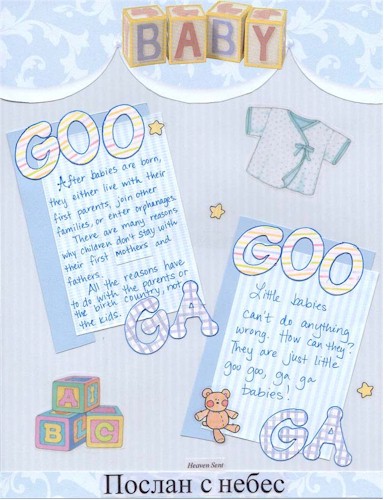 BABY
GOO
After babies are born,
they either live with their
first parents, join other
families, or enter orphanages.
There are many reasons
why children don't stay with
their first mothers and
fathers.
All the reasons have
to do with the parents or
the birth country, not
the kids.
GA
GOO
Little babies
can't do anything
wrong. How can they?
They are just little
goo goo, ga ga
babies!
GA
A
B C
Heaven Sent
Послан с небес